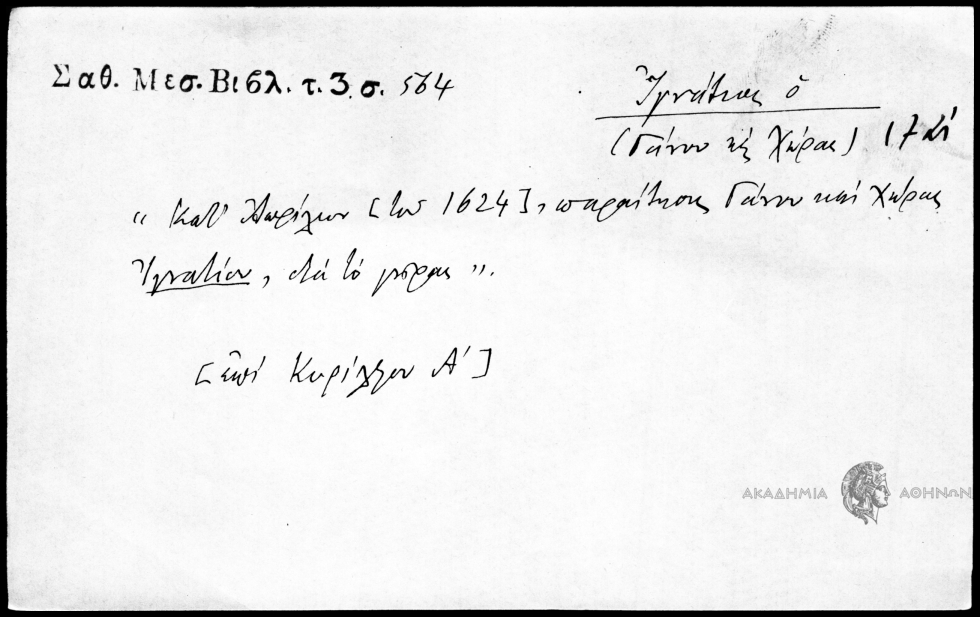 Σαθ. Μεσ. Βιβλ. τ. 3 σ. 564
Ἰγνάτιος ὁ
(Γάνου κὲ Χώρας) 17
“ Κατ' Ἀπρίλιον [τοῦ 1624], παραίτησις Γάνου καὶ Χώρας
Ἰγνατίου, διὰ τὸ γῆρας ”.
[ἐπὶ Κυρίλλου Α']
ΑΚΑΔΗΜΙΑ ΑΘΗΝΩΝ